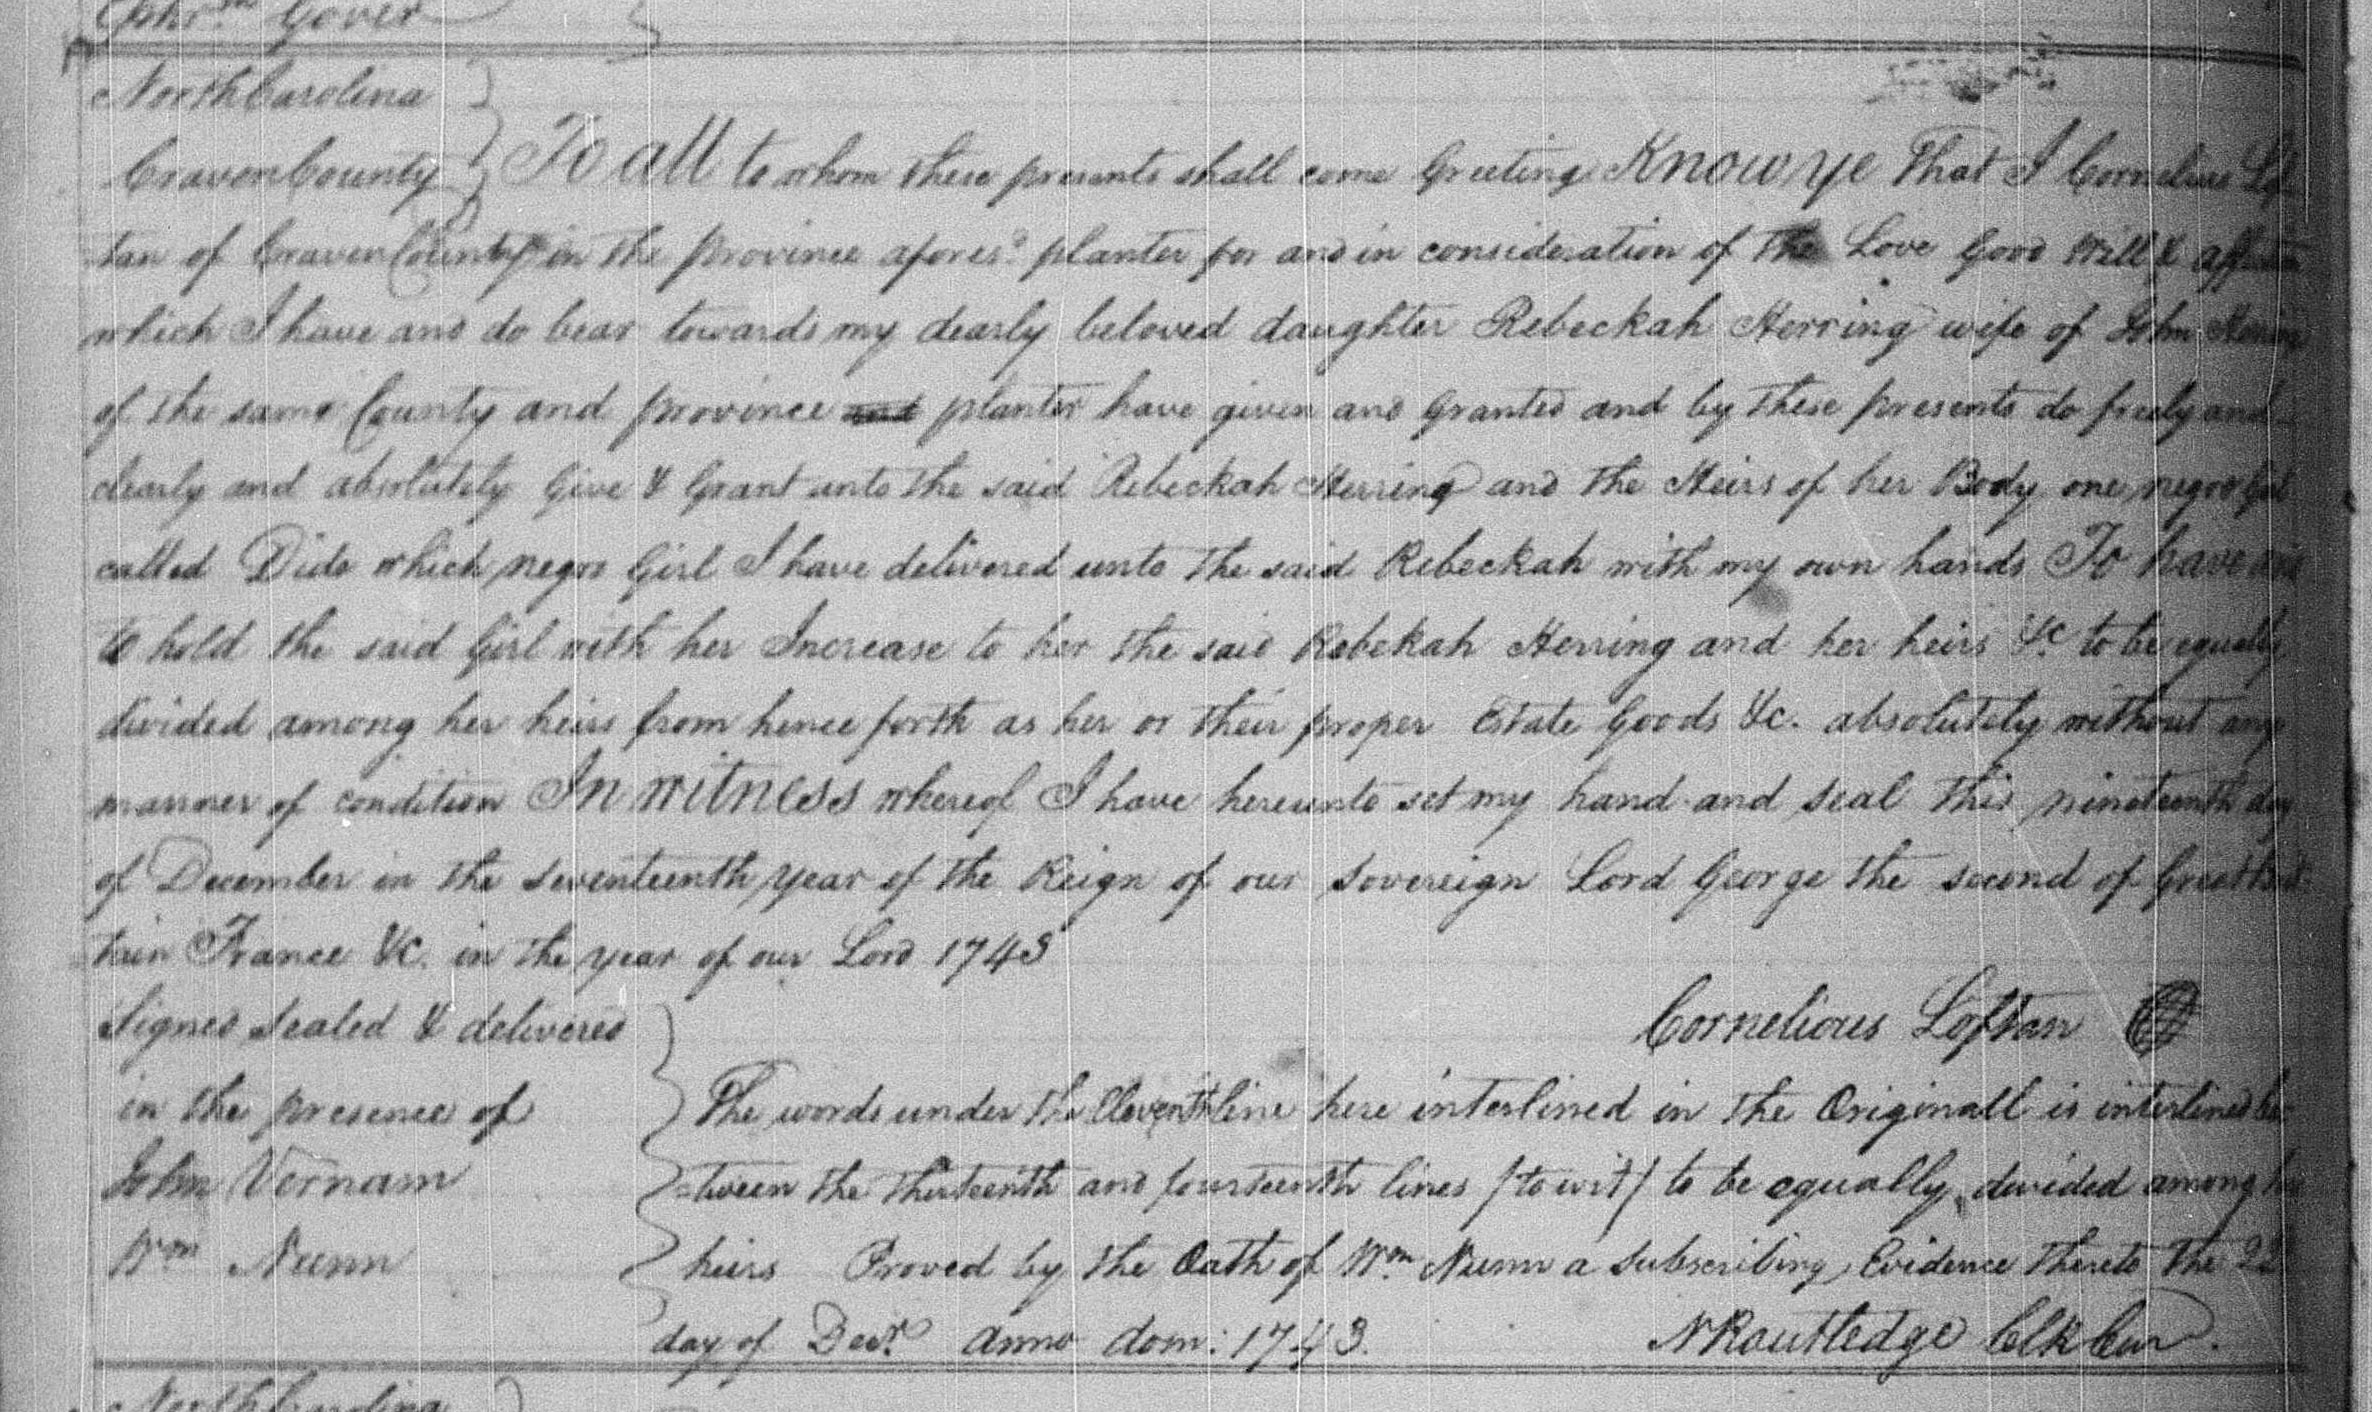 Gover
North Carolina
Craven County To all to whom these presents shall come Greeting Know ye That I Cornelius Lof
tan of Craven County in the province afores.d planter for and in consideration of the Love Good Will & affection
which I have and do bear towards my dearly beloved daughter Rebeckah Herring wife of John Herring
of the same County and province and planter have given and Granted and by these presents do freely and
clearly and absolutely Give & Grant unto the said Rebeckah Herring and the Heirs of her Body one negro Girl
called Dido which negro Girl I have delivered unto the said Rebeckah with my own hands To have and
to hold the said Girl with her Increase to her the said Rebekah Herring and her heirs &c to be equally
divided among her heirs from hence forth as her or their proper Estate Goods &c. absolutely without any
manner of condition In witness whereof I have hereunto set my hand and seal this nineteenth day
of December in the seventeenth year of the Reign of our Sovereign Lord George the second of Great Brit
tain France &c. in the year of our Lord 1743
Signed Sealed & delivered
Cornelious Loftan
in the presence of
The words under the Eleventh line here interlined in the Originall is interlined be
John Vernam
tween the thirteenth and fourteenth lines /to wit/ to be equally divided among her
Wm Nunn
heirs Proved by the Oath of Wm Nunn a Subscribing Evidence thereto the 22
day of Decr. Anno dom: 1743.
N Routledge Clk Cur.
North Carolina